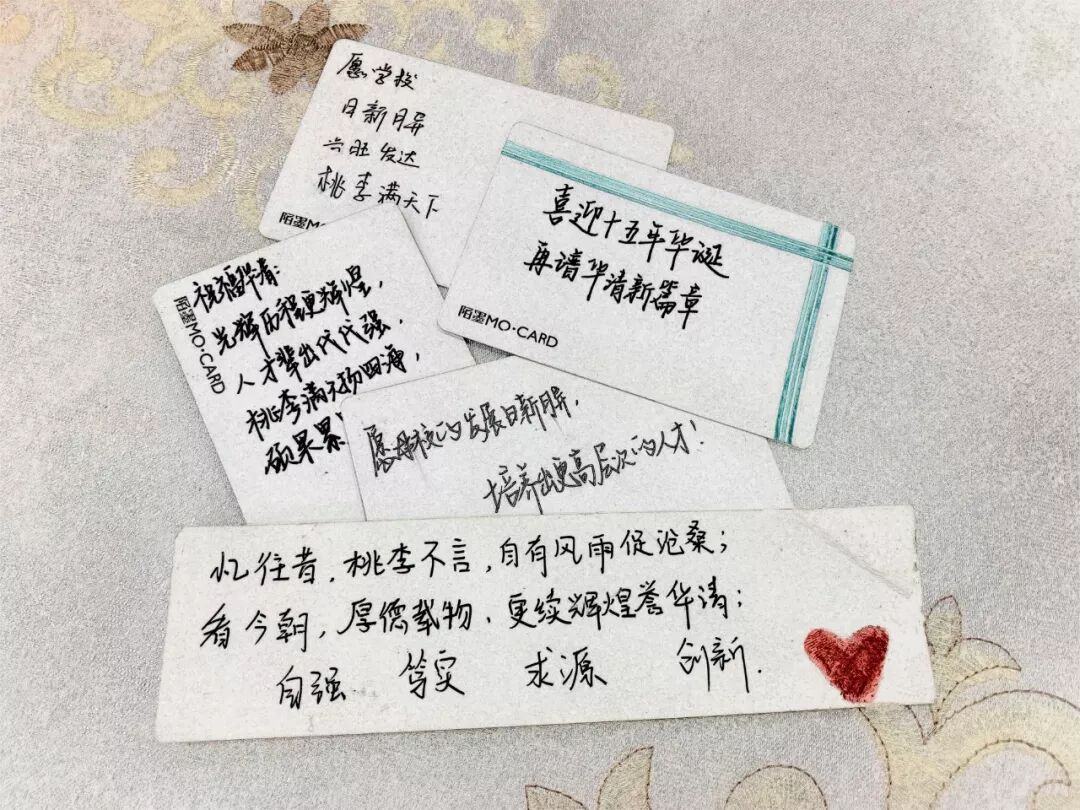 愿学校
日新月异
兴旺发达
桃李满天下
陌墨MO
喜迎十五年华诞
再谱华清新篇章
陌墨MO·CARD
祝福华清:
光辉历程更辉煌,
人才辈出代代强,
桃李满天扬四海,
硕果累
陌墨MO·CARD
愿母校的发展日新月异,
培养出更高层次的人才!
忆往昔,桃李不言,自有风雨促沧桑;
看今朝,厚德载物,更续辉煌誉华清;
自强 笃实 求源 创新.